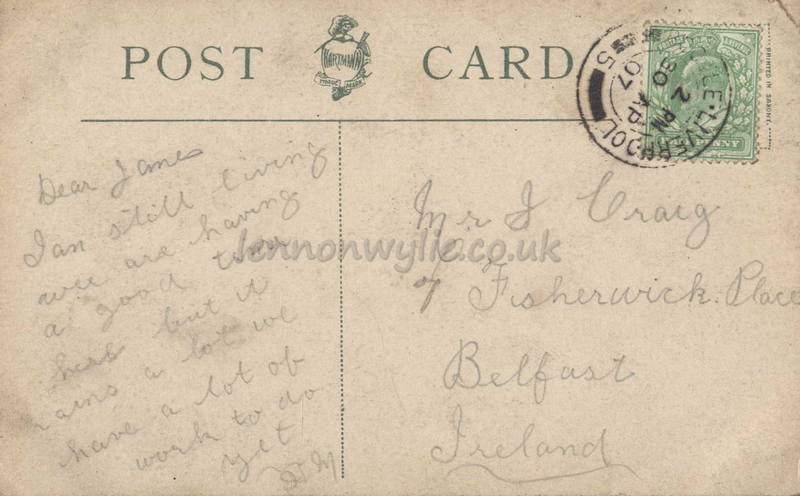 POST CARD
HARTMANN
TRADE MARK
PRINTED IN SAXONY.
LIVERPOOL
5
2 PM
30 AP
07
Dear James
I an still living
wee are having
a good time
here but it
rains a lot we
have a lot of
work to do
yet
Mr J Craig
7 Fisherwick Place
Belfast
Ireland
lennonwylie.co.uk